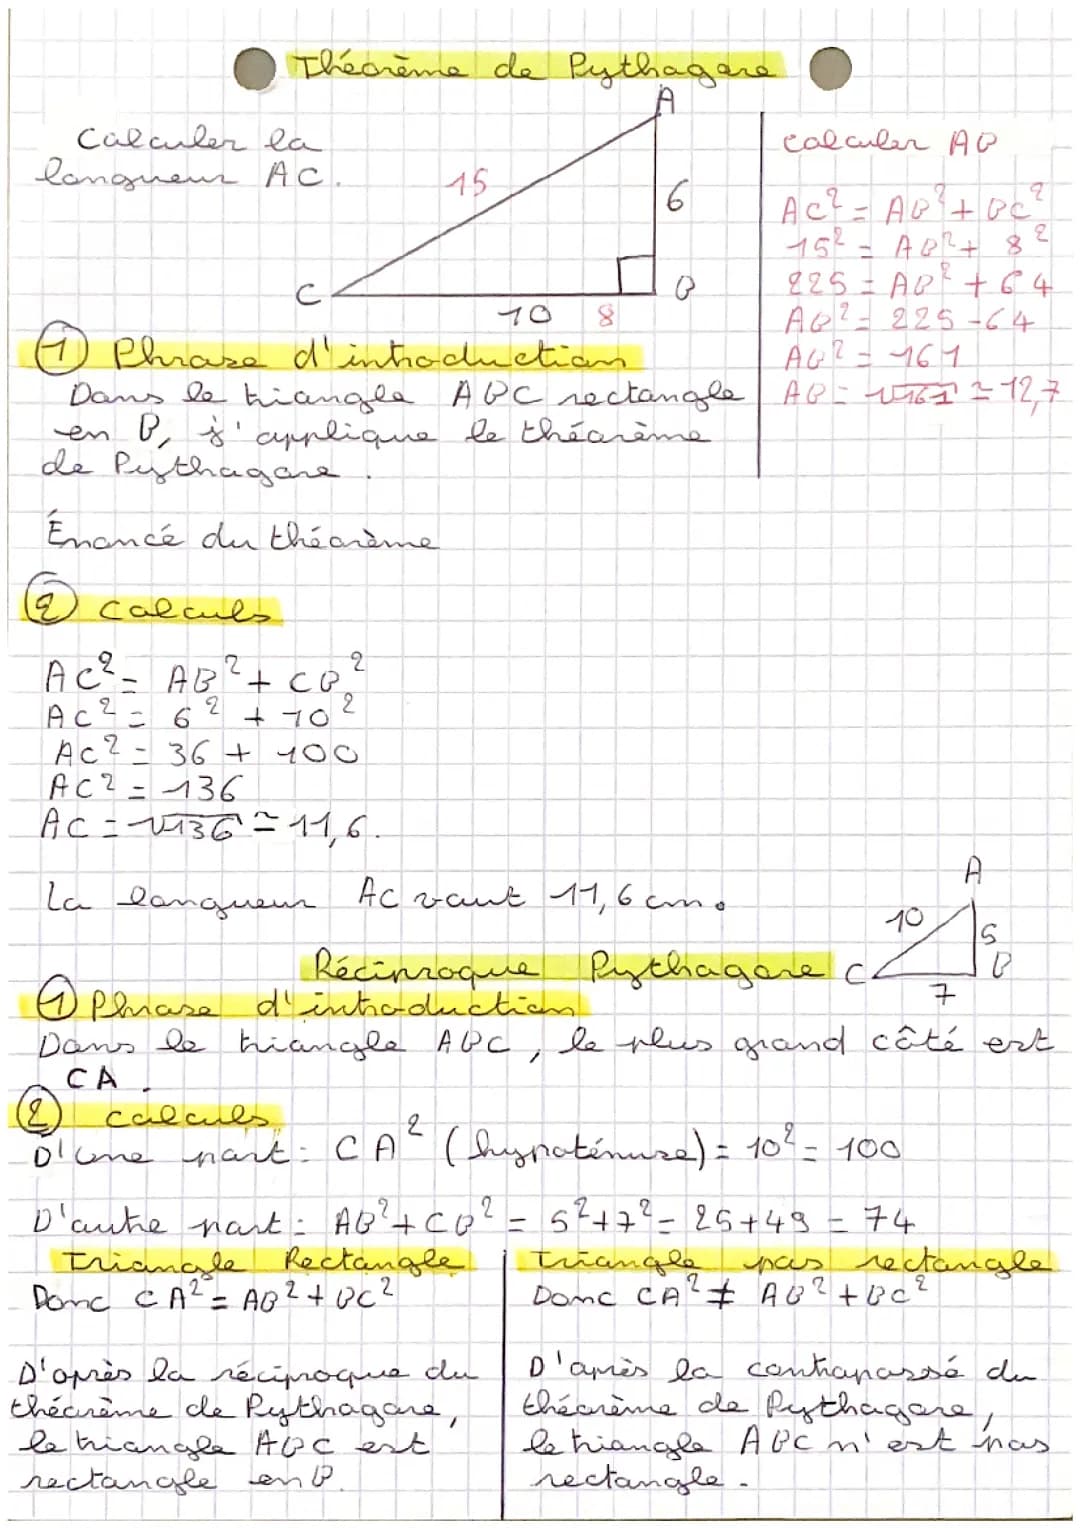 Théorème de Pythagore
Calculer la
longueur AC.
A
15
6
C
B
10
8
calculer AB
AC² = AB² + BC²
15² = AB² + 8²
225 = AB² + 64
AB² = 225 - 64
AB² = 161
AB = √161 ≃ 12,7
① Phrase d'introduction
Dans le triangle ABC rectangle
en B, j'applique le théorème
de Pythagore.
Énoncé du théorème
② calculs
AC² = AB² + CB²
AC² = 6² + 10²
AC² = 36 + 100
AC² = 136
AC = √136 ≃ 11,6.
La longueur AC vaut 11,6 cm.
A
10
5
C
B
7
Réciproque Pythagore
① Phrase d'introduction
Dans le triangle ABC, le plus grand côté est
CA.
② calculs
D'une part : CA² (hypoténuse) = 10² = 100
D'autre part : AB² + CB² = 5² + 7² = 25 + 49 = 74
Triangle Rectangle
Donc CA² = AB² + BC²
D'après la réciproque du
théorème de Pythagore,
le triangle ABC est
rectangle en B.
Triangle pas rectangle
Donc CA² ≠ AB² + BC²
D'après la contraposé du
théorème de Pythagore,
le triangle ABC n'est pas
rectangle.